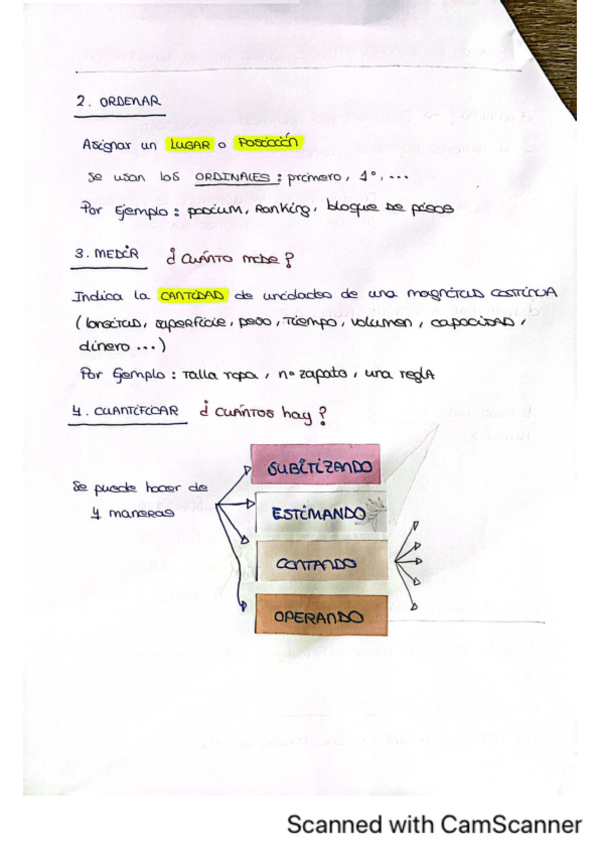 2. ORDENAR
Asignar un LUGAR o POSICIÓN
Se usan los ORDINALES: primero, 1º, ...
Por Ejemplo: podium, Ranking, bloque DE pisos
3. MEDIR ¿CUÁNTO mide?
Indica la CANTIDAD de unidades de una magnitud continua
(longitud, superficie, peso, Tiempo, volumen, capacidad,
dinero ...)
Por Ejemplo: Talla ropa, nº zapato, una regla
4. CUANTIFICAR ¿CUÁNTOS hay?
SUBITIZANDO
Se puede hacer de
4 maneras
ESTIMANDO
CONTANDO
OPERANDO
Scanned with CamScanner